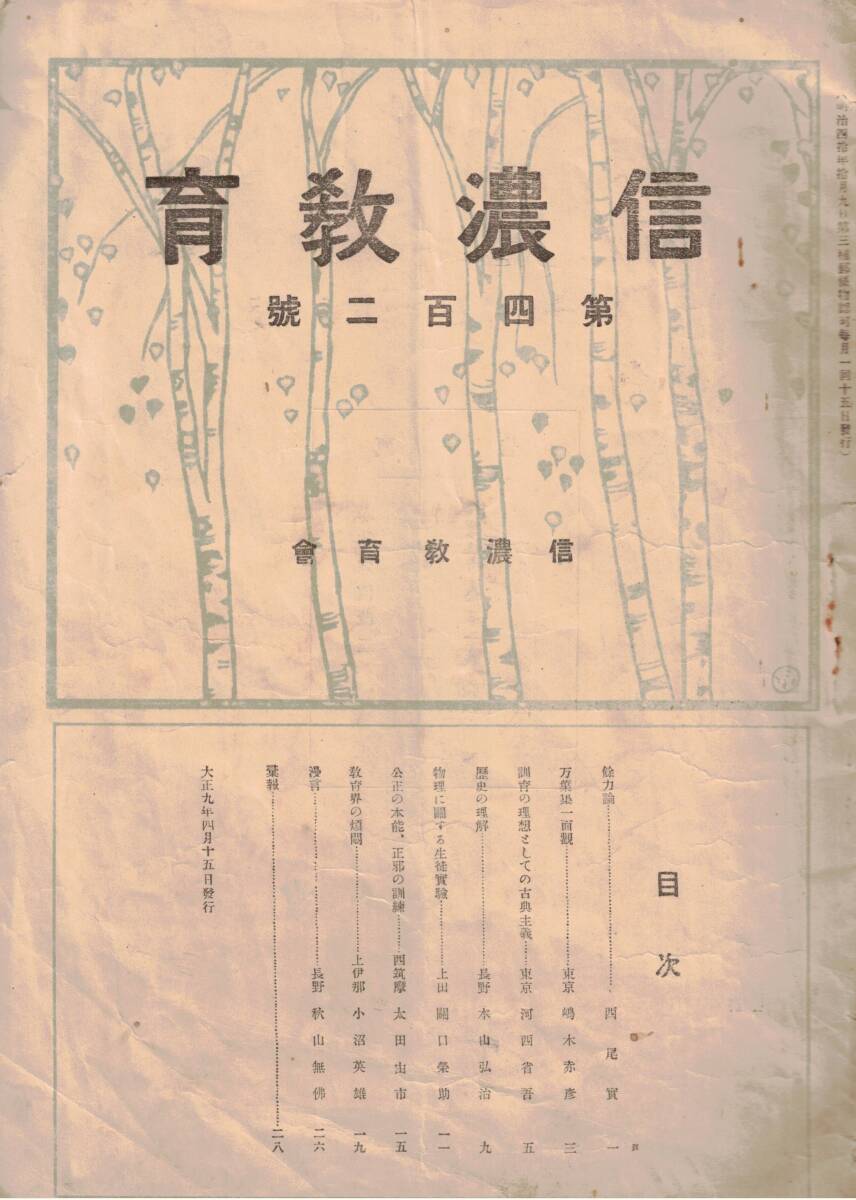 (明治四拾年拾月九日第三種郵便物認可每月一回十五日發行)
信濃敎育
第四百二號
信濃敎育會
目次
頁
餘力論………西尾實 一
万葉集一面觀………東京 嶋木赤彥 三
訓育の理想としての古典主義……東京 河西省吾 五
歷史の理解………長野 木山弘治 九
物理に關する生徒實驗………上田 關口榮助 一一
公正の本能，正邪の訓練……西筑摩 太田由市 一五
敎育界の煩悶………上伊那 小沼英雄 一九
漫言………長野 秋山無佛 二六
彙報………二八
大正九年四月十五日發行